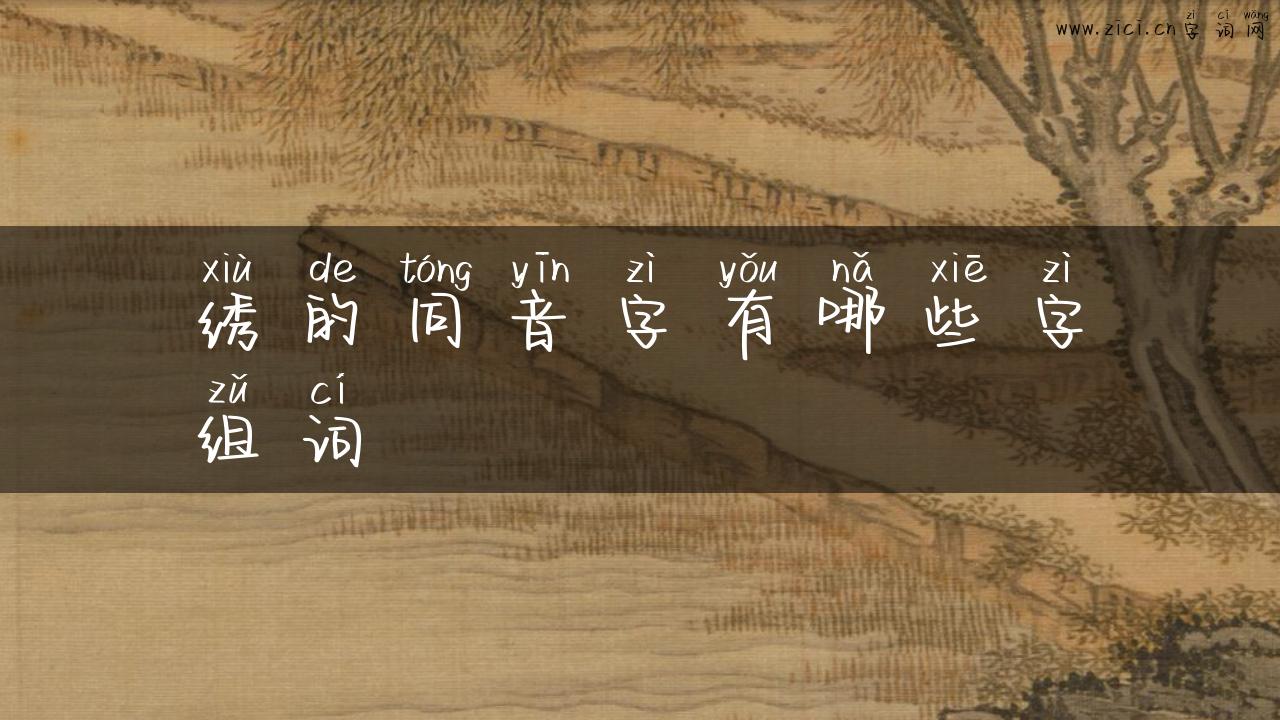 zì cí wǎng
www.zici.cn字词网
xiù de tóng yīn zì yǒu nǎ xiē zì
绣的同音字有哪些字
zǔ cí
组词